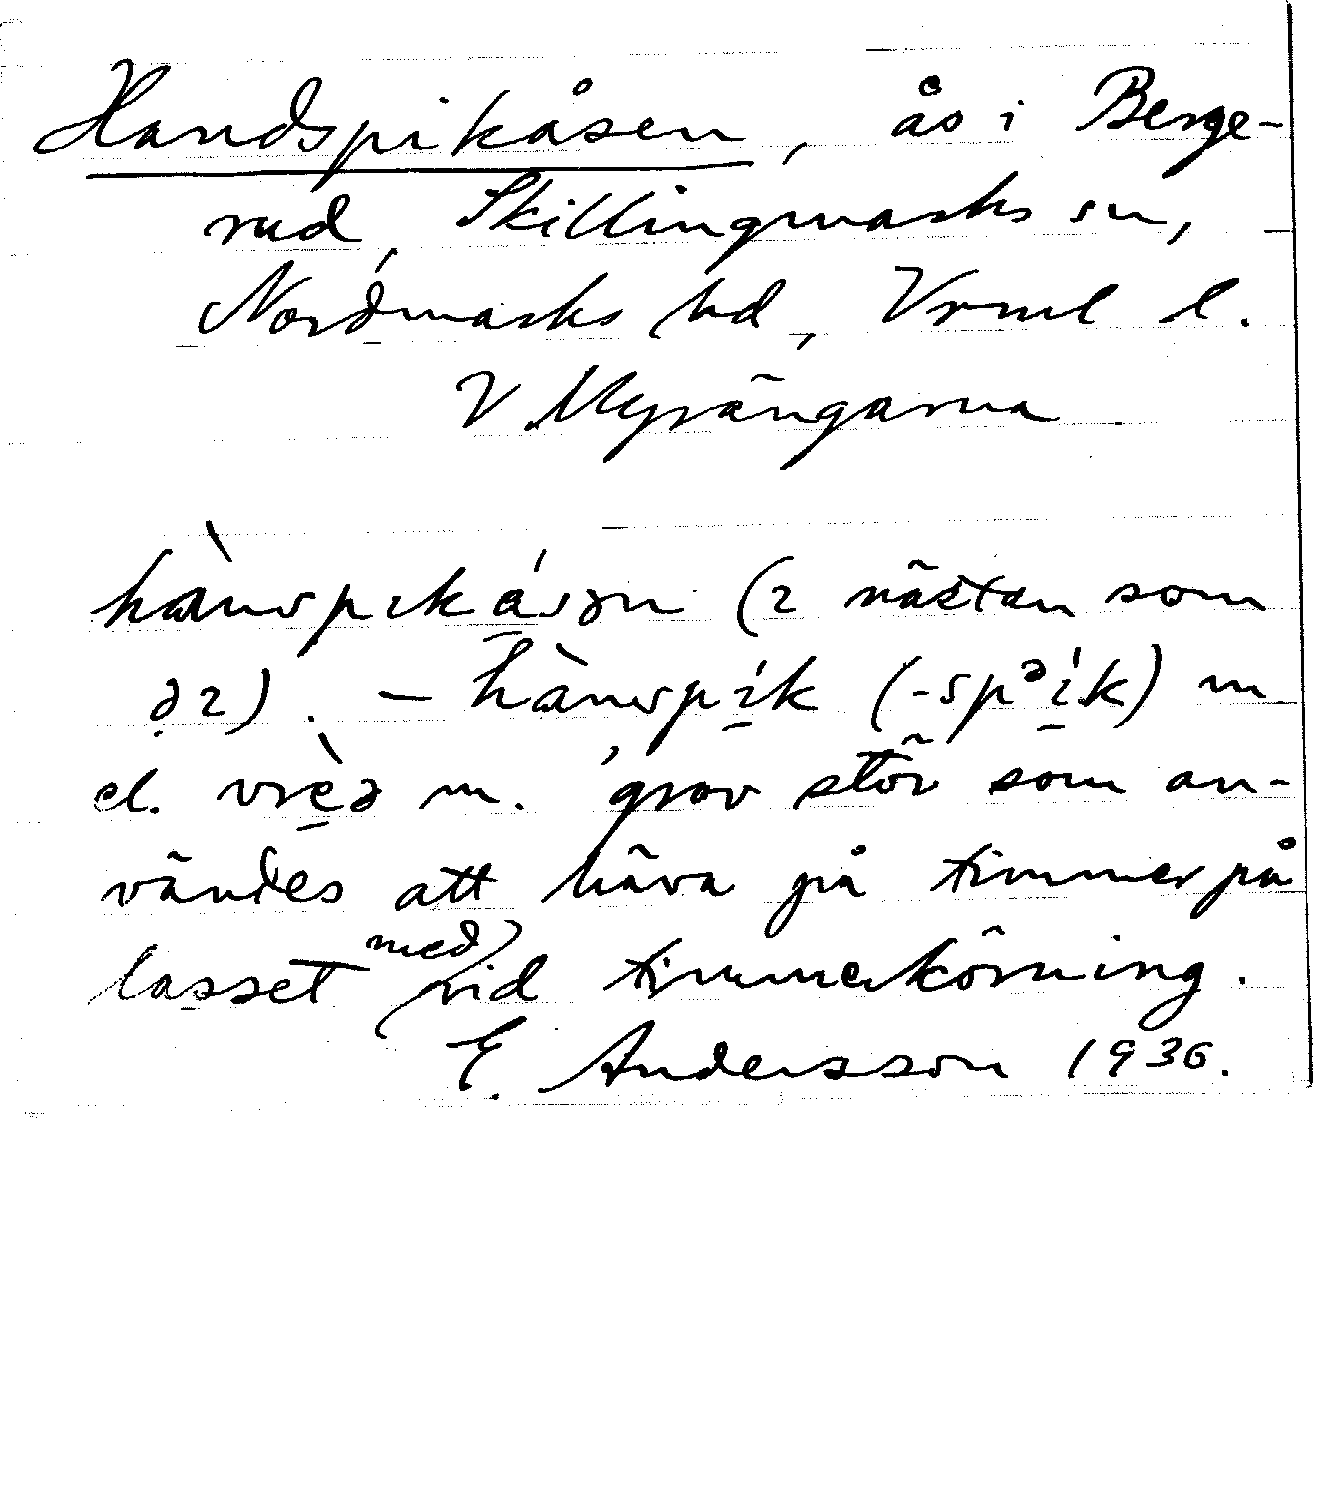 Handspikåsen, ås i Berge-
rud, Skillingmarks sn,
Nordmarks hd, Vrml l.
V. Myrängarna
(ɩ nästan som
əɩ). – hànspík (-spəík) m
el. vrèə m. 'grov stör som an-
vändes att häva på timmer på
lasset med vid timmerkörning.
E. Andersson 1936.